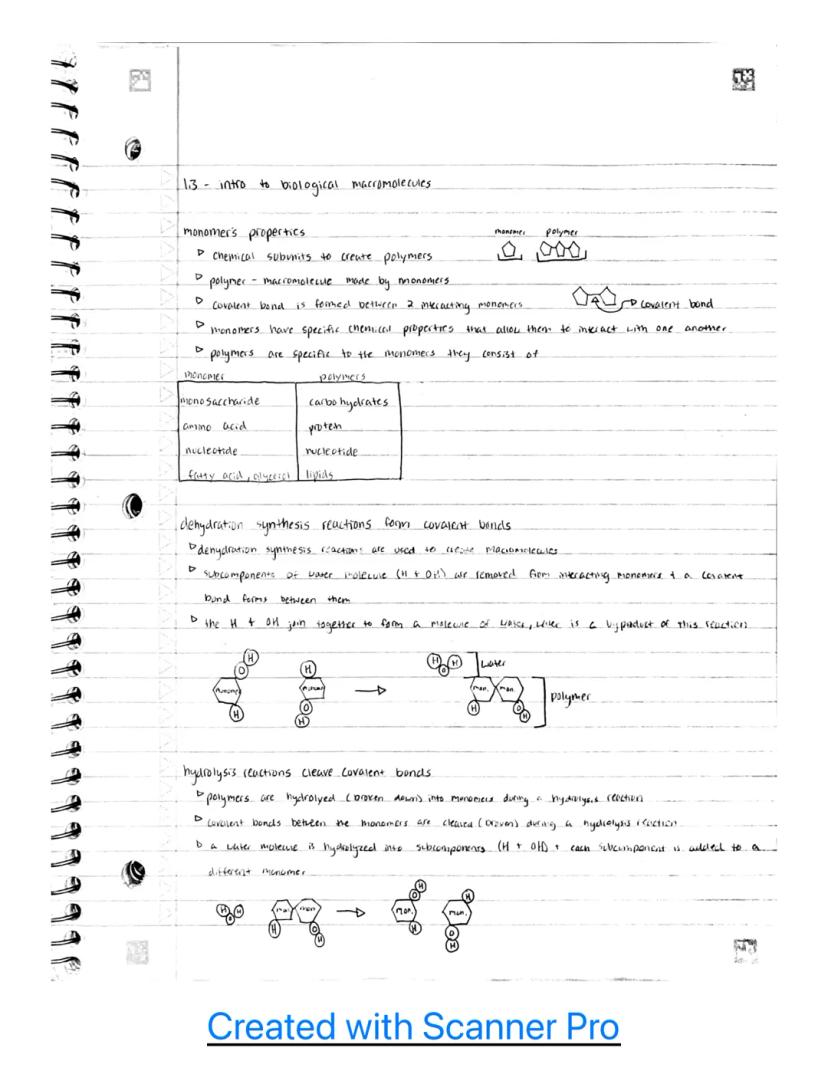 1.3 - intro to biological macromolecules
monomer's properties
monomer polymer
▷ chemical subunits to create polymers
▷ polymer - macromolecule made by monomers
▷ covalent bond is formed between 2 interacting monomers
→ covalent bond
▷ monomers have specific chemical properties that allow them to interact with one another
▷ polymers are specific to the monomers they consist of
monomer polymers
monosaccharide carbohydrates
amino acid protein
nucleotide nucleotide
fatty acid, glycerol lipids
dehydration synthesis reactions form covalent bonds
▷ dehydration synthesis reactions are used to create macromolecules
▷ subcomponents of water molecule (H + OH) are removed from interacting monomers + a covalent
bond forms between them
▷ the H + OH join together to form a molecule of water, water is a byproduct of this reaction
H O H Water
O H H
monomer monomer → mon. mon. polymer
H O H H O H
hydrolysis reactions cleave covalent bonds
▷ polymers are hydrolyed (broken down) into monomers during a hydrolysis reaction
▷ covalent bonds between the monomers are cleaved (broken) during a hydrolysis reaction
▷ a water molecule is hydrolyzed into subcomponents (H + OH) + each subcomponent is added to a
different monomer
H O H mon mon → mon. mon.
H O H O H H H O H
Created with Scanner Pro